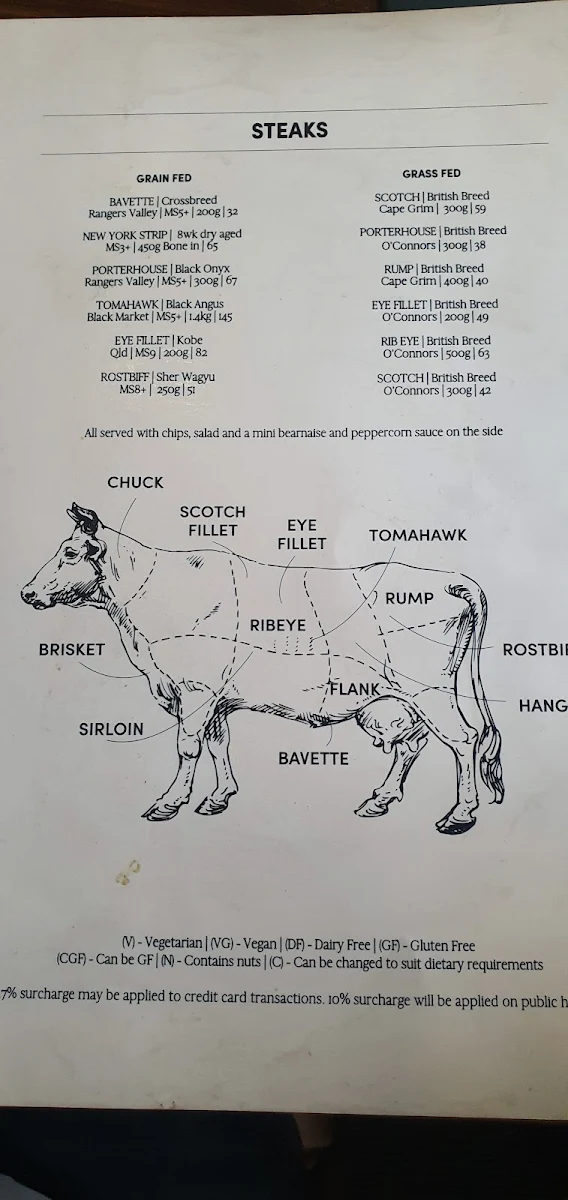 STEAKS
GRAIN FED
BAVETTE | Crossbreed
Rangers Valley | MS5+ | 200g | 32
NEW YORK STRIP | 8wk dry aged
MS3+ | 450g Bone in | 65
PORTERHOUSE | Black Onyx
Rangers Valley | MS5+ | 300g | 67
TOMAHAWK | Black Angus
Black Market | MS5+ | 1.4kg | 145
EYE FILLET | Kobe
Qld | MS9 | 200g | 82
ROSTBIFF | Sher Wagyu
MS8+ | 250g | 51
GRASS FED
SCOTCH | British Breed
Cape Grim | 300g | 59
PORTERHOUSE | British Breed
O'Connors | 300g | 38
RUMP | British Breed
Cape Grim | 400g | 40
EYE FILLET | British Breed
O'Connors | 200g | 49
RIB EYE | British Breed
O'Connors | 500g | 63
SCOTCH | British Breed
O'Connors | 300g | 42
All served with chips, salad and a mini bearnaise and peppercorn sauce on the side
CHUCK
SCOTCH
FILLET
EYE
FILLET
TOMAHAWK
RUMP
RIBEYE
BRISKET
ROSTBI
FLANK
HANG
SIRLOIN
BAVETTE
(V) - Vegetarian | (VG) - Vegan | (DF) - Dairy Free | (GF) - Gluten Free
(CGF) - Can be GF | (N) - Contains nuts | (C) - Can be changed to suit dietary requirements
7% surcharge may be applied to credit card transactions. 10% surcharge will be applied on public h